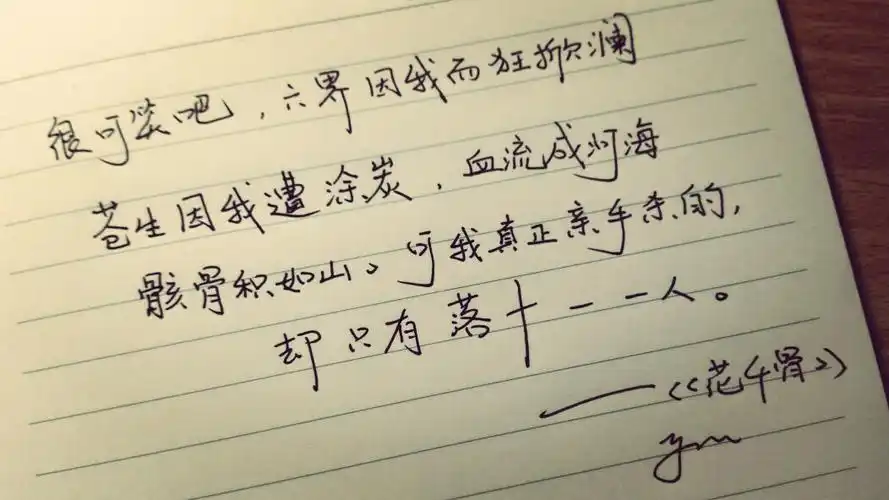 很可笑吧，六界因我而狂掀澜
苍生因我遭涂炭，血流成河海
骸骨积如山。可我真正亲手杀的，
却只有落十一一人。
——《花千骨》
ym